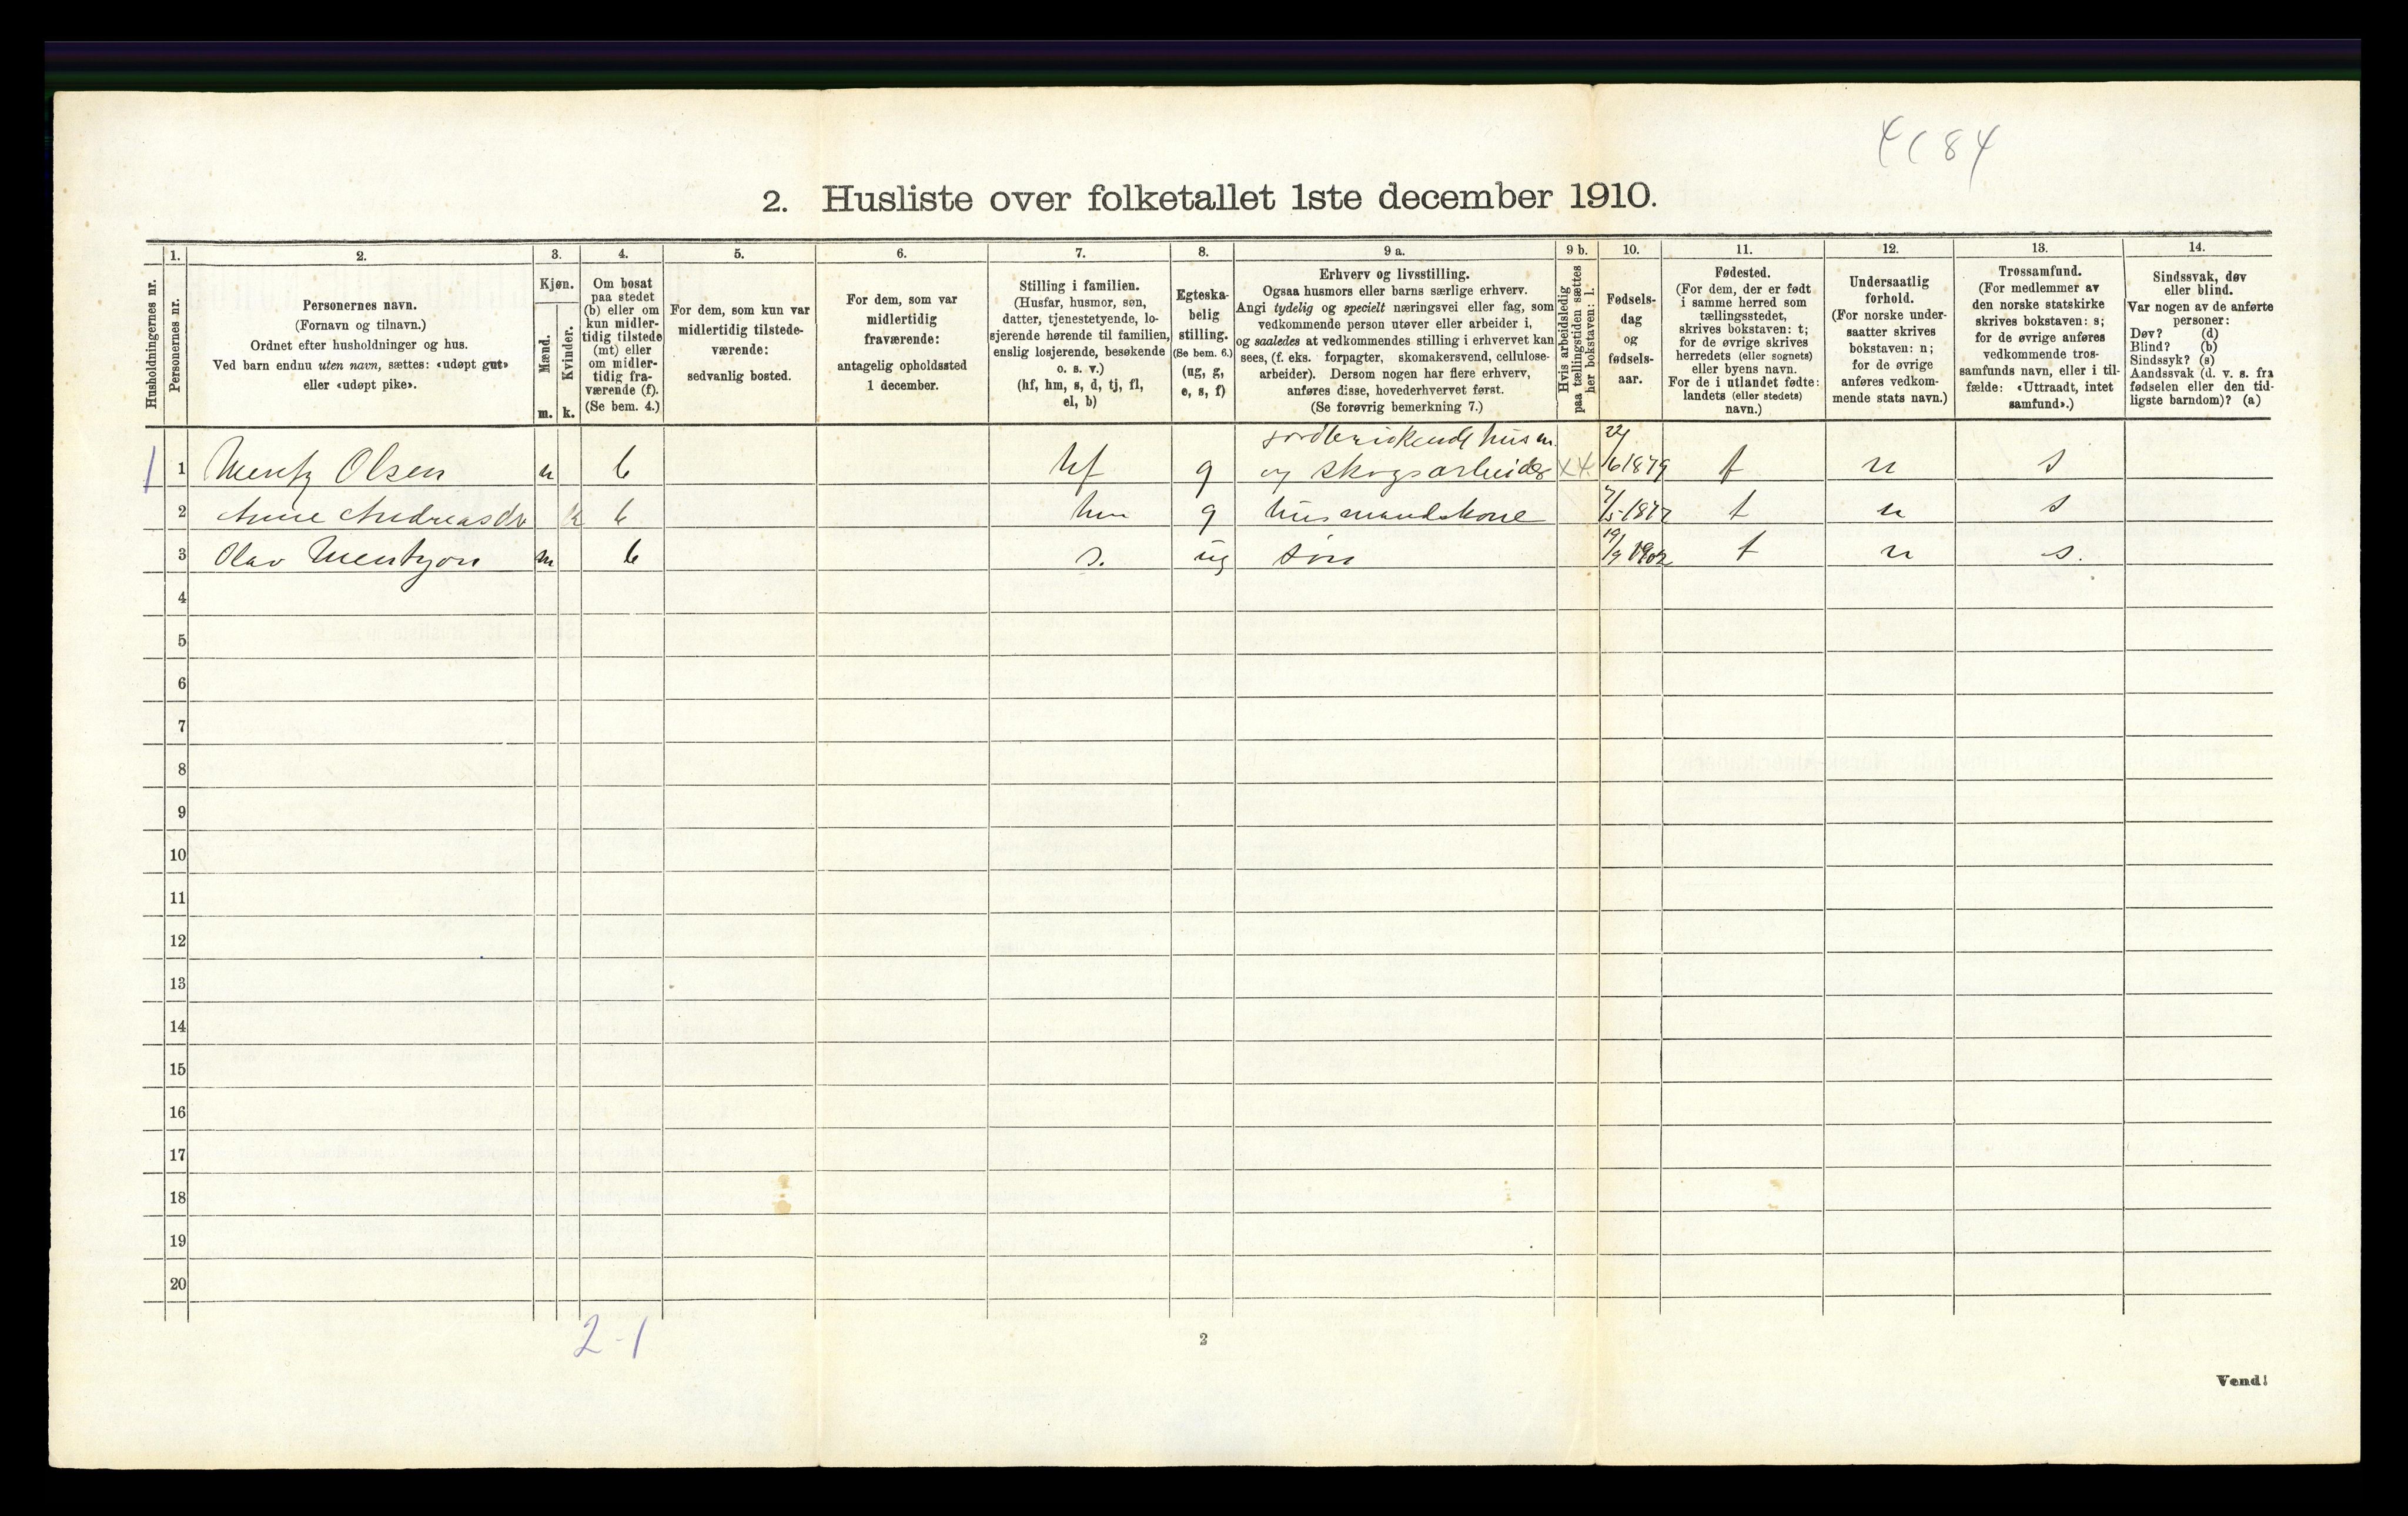 2. Husliste over folketallet 1ste december 1910.
Husholdningernes nr.
1.
Personernes nr.
2.
Personernes navn.
(Fornavn og tilnavn.)
Ordnet efter husholdninger og hus.
Ved barn endnu uten navn, sættes: «udøpt gut»
eller «udøpt pike».
3.
Kjøn.
Mænd.
Kvinder.
m. k.
4.
Om bosat
paa stedet
(b) eller om
kun midler-
tidig tilstede
(mt) eller
om midler-
tidig fra-
værende (f).
(Se bem. 4.)
5.
For dem, som kun var
midlertidig tilstede-
værende:
sedvanlig bosted.
6.
For dem, som var
midlertidig
fraværende:
antagelig opholdssted
1 december.
7.
Stilling i familien.
(Husfar, husmor, søn,
datter, tjenestetyende, lo-
sjerende hørende til familien,
enslig losjerende, besøkende
o. s. v.)
(hf, hm, s, d, tj, fl,
el, b)
8.
Egteska-
belig
stilling.
(Se bem. 6.)
(ug, g,
e, s, f)
9 a.
Erhverv og livsstilling.
Ogsaa husmors eller barns særlige erhverv.
Angi tydelig og specielt næringsvei eller fag, som
vedkommende person utøver eller arbeider i,
og saaledes at vedkommendes stilling i erhvervet kan
sees, (f. eks. forpagter, skomakersvend, cellulose-
arbeider). Dersom nogen har flere erhverv,
anføres disse, hovederhvervet først.
(Se forøvrig bemerkning 7.)
9 b.
Hvis arbeidsledig
paa tællingstiden sættes
her bokstaven: l.
10.
Fødsels-
dag
og
fødsels-
aar.
11.
Fødested.
(For dem, der er født
i samme herred som
tællingsstedet,
skrives bokstaven: t;
for de øvrige skrives
herredets (eller sognets)
eller byens navn.
For de i utlandet fødte:
landets (eller stedets)
navn.)
12.
Undersaatlig
forhold.
(For norske under-
saatter skrives
bokstaven: n;
for de øvrige
anføres vedkom-
mende stats navn.)
13.
Trossamfund.
(For medlemmer av
den norske statskirke
skrives bokstaven: s;
for de øvrige anføres
vedkommende tros-
samfunds navn, eller i til-
fælde: «Uttraadt, intet
samfund».)
14.
Sindssvak, døv
eller blind.
Var nogen av de anførte
personer:
Døv? (d)
Blind? (b)
Sindssyk? (s)
Aandssvak (d. v. s. fra
fødselen eller den tid-
ligste barndom)? (a)
jordbrukende husm.
1 1 Mentz Olsen m b hf g og skogsarbeider xx 22/6 1879 t n s
2 Anne Andreasdr k b hm g husmandskone t n s
3 Olav Mentzøn m b s. ug søn 19/9 1902 t n s.
4
5
6
7
8
9
10
11
12
13
14
15
16
17
18
19
20
2-1
2
Vend!